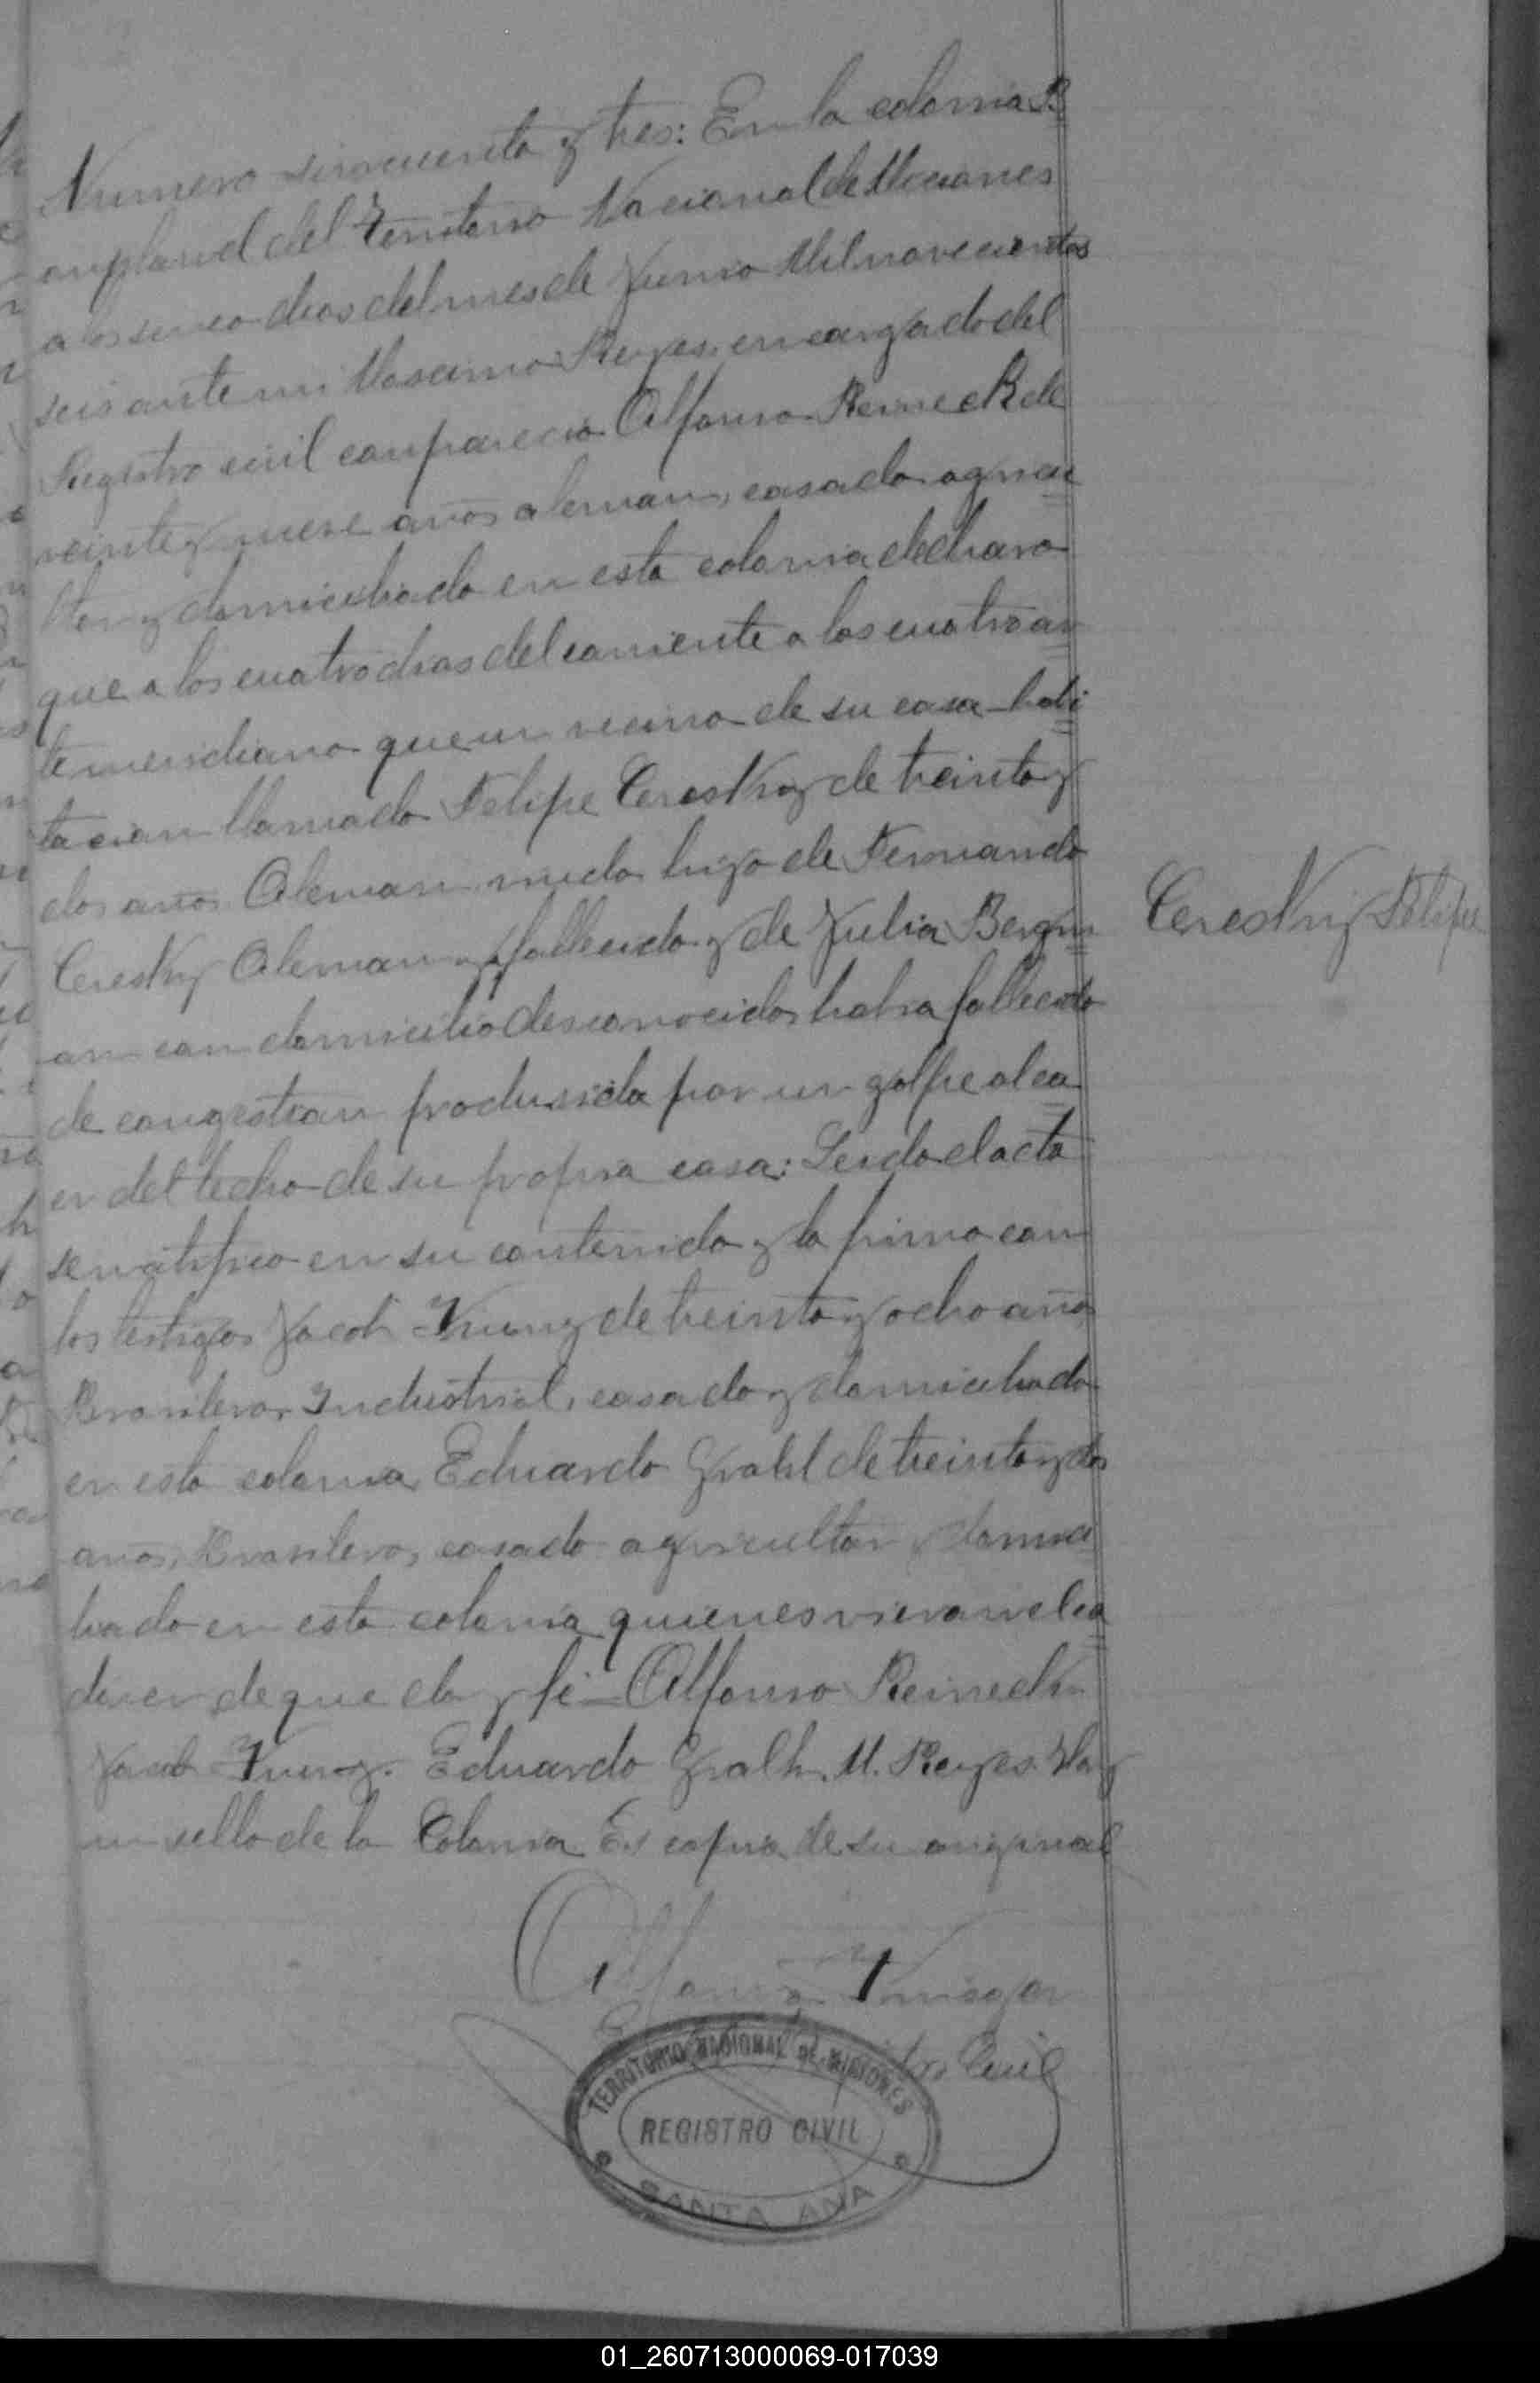 Numero sincuenta y tres: En la colonia B
onpland del Territorio Nacional de Misiones
a los sinco dias del mes de Junio Mil novecientos
seis ante mi Maximo Reyes, encargado del
Registro civil conparecio Alfonso Reineck de
veinte y nueve años aleman, casado agricu
ltor y domiciliado en esta colonia declaro
que a los cuatro dias del corriente a las cuatro an
temeridiano que un vecino de su casa habi
tacion llamado Felipe Ceresky de treinta y
dos años Aleman viudo hijo de Fernando
Ceresky Aleman fallecido y de Julia Bergm
an con domicilio desconocido habia fallecido
de congestion produsida por un golpe al ca
er del techo de su propia casa: Leido el acta
se ratifico en su contenido y la firmo con
los testigos Jacob Kunz de treinta y ocho años
Brasilero, Industrial, casado y domiciliado
en esta colonia Eduardo Grahl de treinta y dos
años, Brasilero, casado agricultor y domici
liado en esta colonia quienes vieron el ca
daver de que doy fé Alfonso Reineck
Jacob Kunz. Eduardo Gralh. M. Reyes. Hay
un sello de la Colonia Es copia de su original
Ceresky Felipe
Civil
TERRITORIO NACIONAL DE MISIONES
REGISTRO CIVIL
SANTA ANA
01_260713000069-017039